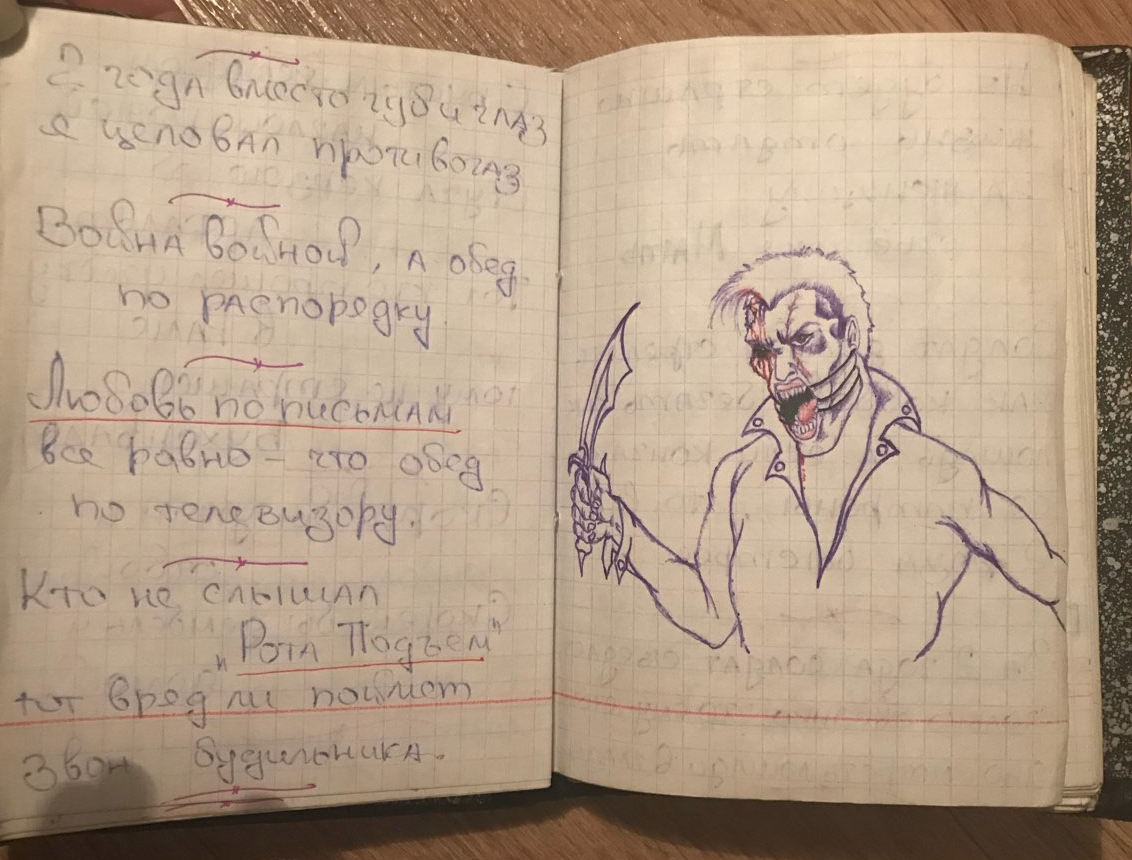 2 года вместо губ и глаз
я целовал противогаз
Война войной, а обед
по распорядку
Любовь по письмам
всё равно - что обед
по телевизору.
Кто не слышал
"Рота Подъем"
тот вряд ли поймет
звон будильника.